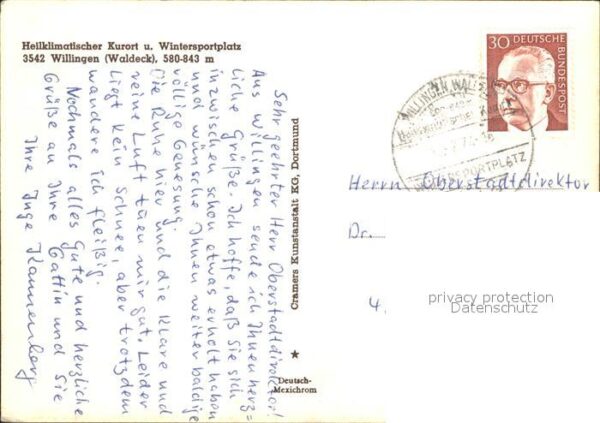 Heilklimatischer Kurort u. Wintersportplatz
3542 Willingen (Waldeck), 580-843 m
Sehr geehrter Herr Oberstadtdirektor!
Aus Willingen sende ich Ihnen herz=
liche Grüße. Ich hoffe, daß Sie sich
inzwischen schon etwas erholt haben
und wünsche Ihnen weiter baldige
völlige Genesung.
Die Ruhe hier und die klare und
reine Luft tuen mir gut. Leider
liegt kein Schnee, aber trotzdem
wandere ich fleißig.
Nochmals alles Gute und herzliche
Grüße an Ihre Gattin und Sie
Ihre Inge Kannenberg
Cramers Kunstanstalt KG, Dortmund
Deutsch-
Mexichrom
30 DEUTSCHE
BUNDESPOST
WILLINGEN, WALDECK
Heilklimatischer Kurort
WINTERSPORTPLATZ
Herrn Oberstadtdirektor
Dr.
4
privacy protection
Datenschutz